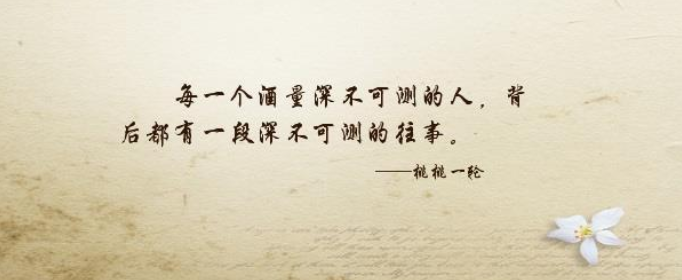 每一个酒量深不可测的人，背
后都有一段深不可测的往事。
——桃桃一轮